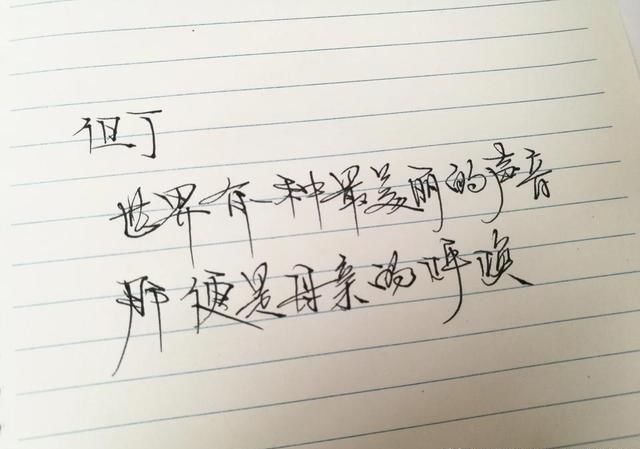 但丁
世界有一种最美丽的声音
那便是母亲的呼唤